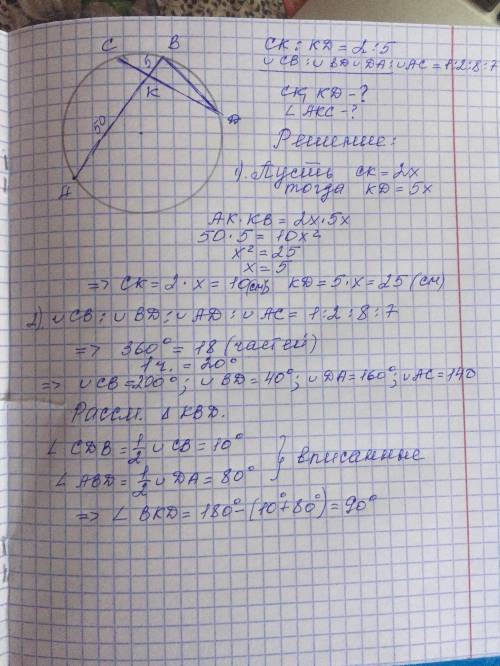 C 5 B
K
50
D
A
CK : KD = 2 : 5
∪CB : ∪BD ∪DA : ∪AC = 1:2:8:7
CK, KD - ?
∠ AKC - ?
Решение:
1). Пусть CK = 2x
тогда KD = 5x
AK · KB = 2x · 5x
50 · 5 = 10x²
x² = 25
x = 5
=> CK = 2 · x = 10(см), KD = 5 · x = 25 (см)
2). ∪CB : ∪BD : ∪AD : ∪AC = 1 : 2 : 8 : 7
=> 360° = 18 (частей)
1 ч. = 20°
=> ∪CB = 200° ; ∪BD = 40° ; ∪DA = 160° ; ∪AC = 140
Рассм. Δ KBD.
∠ CDB = 1/2 ∪ CB = 10°
∠ ABD = 1/2 ∪ DA = 80° } вписанные
=> ∠ BKD = 180° - (10° + 80°) = 90°